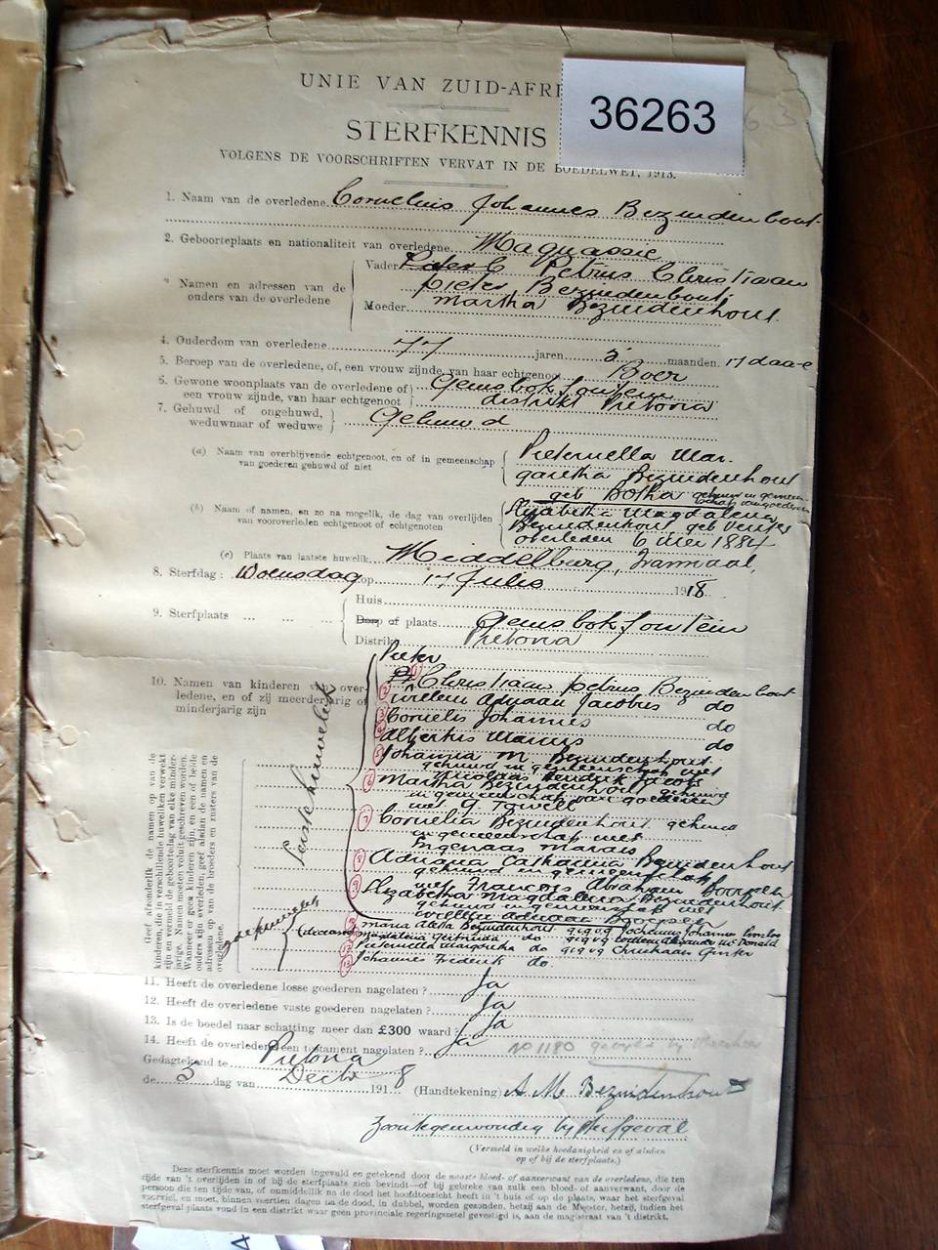 UNIE VAN ZUID-AFRI
36263
STERFKENNIS
VOLGENS DE VOORSCHRIFTEN VERVAT IN DE BOEDELWET, 1913.
1. Naam van de overledene Cornelius Johannes Bezuidenhout
2. Geboorteplaats en nationaliteit van overledene Maquassie
Namen en adressen van de ouders van de overledene
Vader Pieter C Petrus Christiaan
Pieter Bezuidenhout
Moeder Martha Bezuidenhout
4. Ouderdom van overledene 77 jaren 2 maanden 17 daae
5. Beroep van de overledene, of, een vrouw zijnde, van haar echtgenoot Boer
6. Gewone woonplaats van de overledene of een vrouw zijnde, van haar echtgenoot
Gemsbokfontein
distrikt Pretoria
7. Gehuwd of ongehuwd, weduwnaar of weduwe Gehuwd
(a) Naam van overblijvende echtgenoot, en of in gemeenschap van goederen gehuwd of niet
Pieternella Mar-
garetha Bezuidenhout
geb Botha gehuwd in gemeen
(b) Naam of namen, en zo na mogelijk, de dag van overlijden van vooroverleden echtgenoot of echtgenoten
Elizabeth Magdalena
Bezuidenhout geb
overleden 6 Mei 1884
(c) Plaats van laatste huwelik Middelburg, Transvaal,
8. Sterfdag: Woensdag op 17 Julie 1918
9. Sterfplaats ... ... ...
Huis
Dorp of plaats Gemsbokfontein
Distrikt Pretoria
10. Namen van kinderen van overledene, en of zij meerderjarig of minderjarig zijn
Eerste huwelik
Pieter
1 Christiaan Petrus Bezuidenhout
2 Willem Adriaan Jacobus do
3 Cornelis Johannes do
4 Albertus Marius do
5 Johanna M Bezuidenhout
gehuwd in gemeenschap met
Nicolaas Hendrik Jacobs
6 Martha Bezuidenhout gehuwd
in gemeenschap van goederen
met G.
7 Cornelia Bezuidenhout gehuwd
in gemeenschap met
Marais
8 Adriana Catharina Bezuidenhout
gehuwd in gemeenschap
met Francois Abraham
9 Elizabetha Magdalena Bezuidenhout
gehuwd in gemeenschap met
Willem Adriaan
2de huwelik
Maria Aletta Bezuidenhout Jochamus Johannes
Magdalena Geertruida do Alexander McDonald
Pieternella Margaretha do Christiaan
Johannes Frederik do
Geef afzonderlik de namen op van de kinderen, die in verschillende huweliken verwekt zijn en vermeld de geboortedag van elke minderjarige. Namen moeten voluit geschreven worden. Wanneer er geen kinderen zijn, en een of beide ouders zijn overleden, geef alsdan de namen en adressen op van de broeders en zusters van de overledene.
11. Heeft de overledene losse goederen nagelaten? Ja
12. Heeft de overledene vaste goederen nagelaten? Ja
13. Is de boedel naar schatting meer dan £300 waard? Ja
14. Heeft de overledene een testament nagelaten? Ja No 1180
Gedagtekend te Pretoria
de 3 dag van Decbr 1918 (Handtekening) A M Bezuidenhout
Zoon tegenwoordig bij sterfgeval
(Vermeld in welke hoedanigheid en of alsdan op of bij de sterfplaats.)
Deze sterfkennis moet worden ingevuld en getekend door de naaste bloed- of aanverwant van de overledene, die ten
tijde van 't overlijden in of bij de sterfplaats zich bevindt—of bij gebreke van zulk een bloed- of aanverwant, door de
persoon die ten tijde van, of onmiddellik na de dood het hoofdtoezicht heeft in 't huis of op de plaats, waar het sterfgeval
voorviel, en moet, binnen veertien dagen na de dood, in dubbel, worden gezonden, hetzij aan de Meester, hetzij, indien het
sterfgeval plaats vond in een distrikt waar geen provinciale regeringszetel gevestigd is, aan de magistraat van 't distrikt.